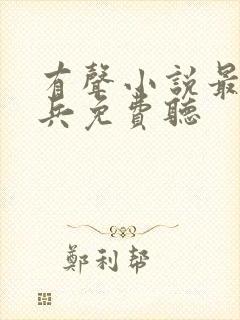 有聲小說最
兵免費聽
鄭利幫